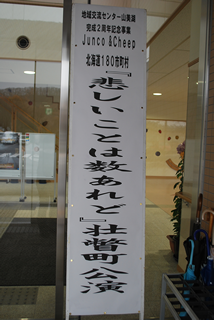 地域交流センター山美湖
完成2周年記念事業
Junco &Cheep
北海道180市町村
『悲しいことは数あれど』壮瞥町公演